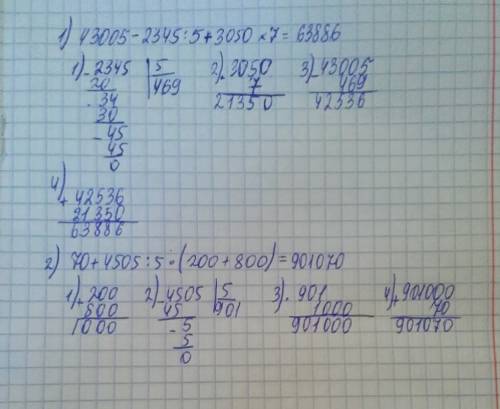 1) 43005 - 2345 : 5 + 3050 × 7 = 63886
1) - 2345 | 5
20 | 469
- 34
30
- 45
45
0
2) × 3050
7
21350
3) - 43005
469
42536
4)
+ 42536
21350
63886
2) 70 + 4505 : 5 · (200 + 800) = 901070
1) + 200
800
1000
2) - 4505 | 5
45 | 901
- 5
5
0
3) · 901
1000
901000
4) + 901000
70
901070